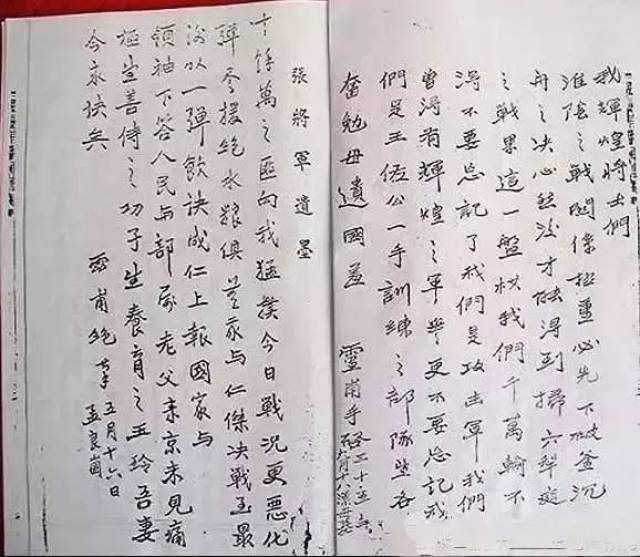 我輝煌將士們
淮陰之戰関係極重必先下破釜沉
舟之决心然後才能得到掃穴犁庭
之戰果這一盤棋我們千萬輸不
得不要忘記了我們是攻击軍我們
曾得有輝煌之軍譽更不要忘記我
們是王佐公一手訓練之部隊望各
奮勉毋遺國羞 靈甫手
張將軍遺墨
十餘萬之匪向我猛撲今日戰况更惡化
彈盡援絶水粮俱 我与仁傑决戰至最
後以一彈飲訣成仁上報國家与
領袖下答人民与部屬老父来京未見痛
極望善待之幼子望養育之玉玲吾妻
今永訣矣
靈甫絶筆 五月十六日
孟良崮